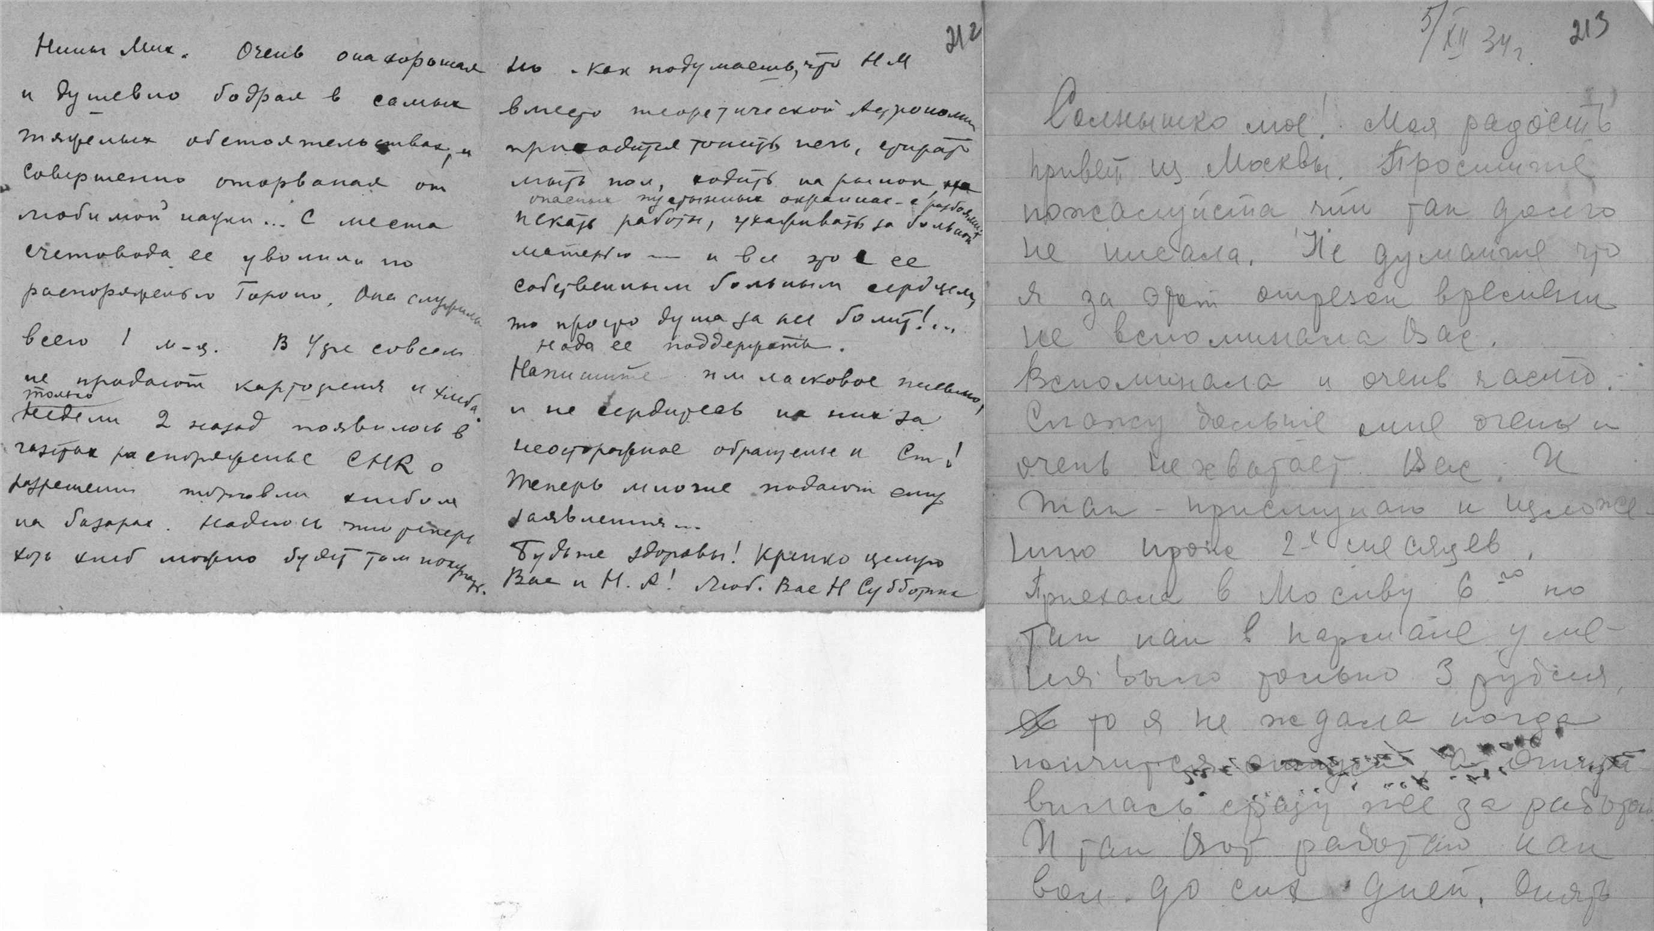 Нины Мих. Очень она хорошая
и душевно бодрая в самых
тяжелых обстоятельствах, и
совершенно оторваная от
любимой науки... С места
счетовода ее уволили по
распоряженью Гороно. Она служила
всего 1 м-ц. В Уфе совсем
не продают картофеля и хлеба.
только
Недели 2 назад появилось в
газетах распоряженье СНК о
разрешении торговли хлебом
на базарах. Надеюсь что теперь
хоть хлеб можно будет там покупать.
212
но как подумаешь, что Н М
вместо теоретической Астрономии
приходится топить печь, стирать
мыть пол, ходить на рынок
опасных пустынных окраинах - с разбоями
искать работы, ухаживать за больной
матерью — и все это с ее
собственным больным сердцем,
то просто душа за нее болит!...
Надо ее поддержать.
Напишите им ласковое письмо,
и не сердитесь на них за
неосторожное обращенье к Ст.!
Теперь многие подают ему
заявления...
Будьте здоровы! Крепко целую
Вас и Н. А! Люб. Вас Н Субботина
5/XII 34 г.
213
Солнышко мое! Моя радость
привет из Москвы. Простите
пожалуйста что так долго
не писала. Не думайте что
я за этот отрезок времени
не вспоминала Вас.
Вспоминала и очень часто.
Скажу больше мне очень и
очень нехватает Вас. И
так - приступаю к изложе-
нию проже 2-х месяцев.
Приехала в Москву 6го но
так как в кармане у ме-
ня было только 3 рубля,
то я не ждала когда
кончится отпуск, а
вилась сразу же за работой
И так вот работаю как
вол до сих дней. Опять